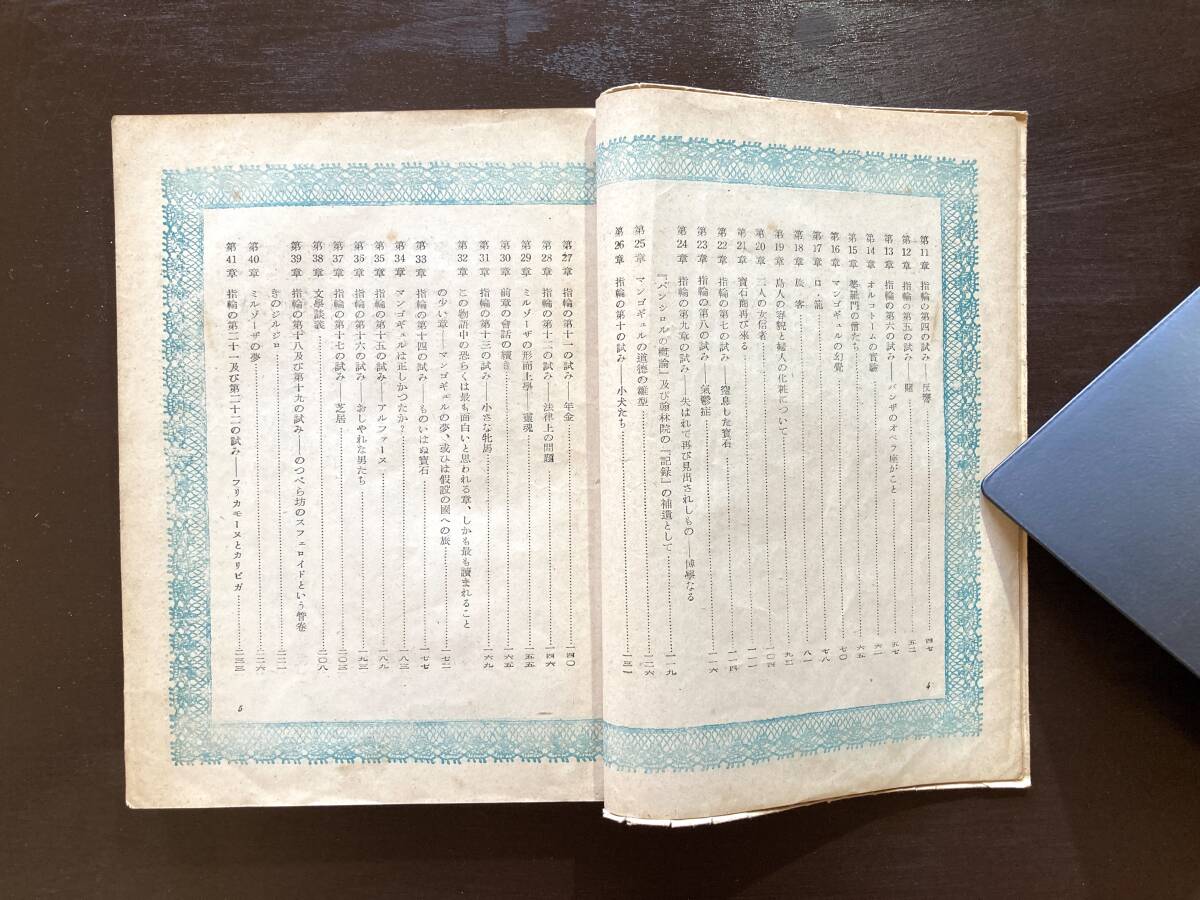 第11章 指輪の第四の試み——反響……四七
第12章 指輪の第五の試み——賭……五二
第13章 指輪の第六の試み——バンザのオペラ座がこと……五七
第14章 オルコトームの實驗……六一
第15章 婆羅門の僧たち……六五
第16章 マンゴギュルの幻覺……七〇
第17章 口籠……七八
第18章 旅客……八一
第19章 島人の容貌と婦人の化粧について……九二
第20章 二人の女信者……一〇四
第21章 寶石商再び來る……一一四
第22章 指輪の第七の試み——窒息した寶石……一一六
第23章 指輪の第八の試み——氣鬱症
第24章 指輪の第九章の試み——失はれて再び見出されしもの——博學なる
『パンシロルの概論』及び翰林院の『記録』の補遺として……一一九
第25章 マンゴギュルの道德の雛型……一二六
第26章 指輪の第十の試み——小犬たち……一三一
4
第27章 指輪の第十一の試み——年金……一四〇
第28章 指輪の第十二の試み——法律上の問題……一四六
第29章 ミルゾーザの形而上學——靈魂……一五五
第30章 前章の會話の續き……一六五
第31章 指輪の第十三の試み——小さな牝馬……一六九
第32章 この物語中の恐らくは最も面白いと思われる章、しかも最も讀まれること
の少い章——マンゴギュルの夢、或ひは假設の國への旅……一七二
第33章 指輪の第十四の試み——ものいはぬ寶石……一七七
第34章 マンゴギュルは正しかつたか?……一八三
第35章 指輪の第十五の試み——アルファーヌ……一八九
第36章 指輪の第十六の試み——おしやれな男たち……一九三
第37章 指輪の第十七の試み——芝居……二〇三
第38章 文學談義……二〇八
第39章 指輪の第十八及び第十九の試み——のつぺら坊のスフェロイドという管卷
きのジルジロ……二二一
第40章 ミルゾーザの夢……二二六
第41章 指輪の第二十一及び第二十二の試み——フリカモーヌとカリピガ……二三三
5